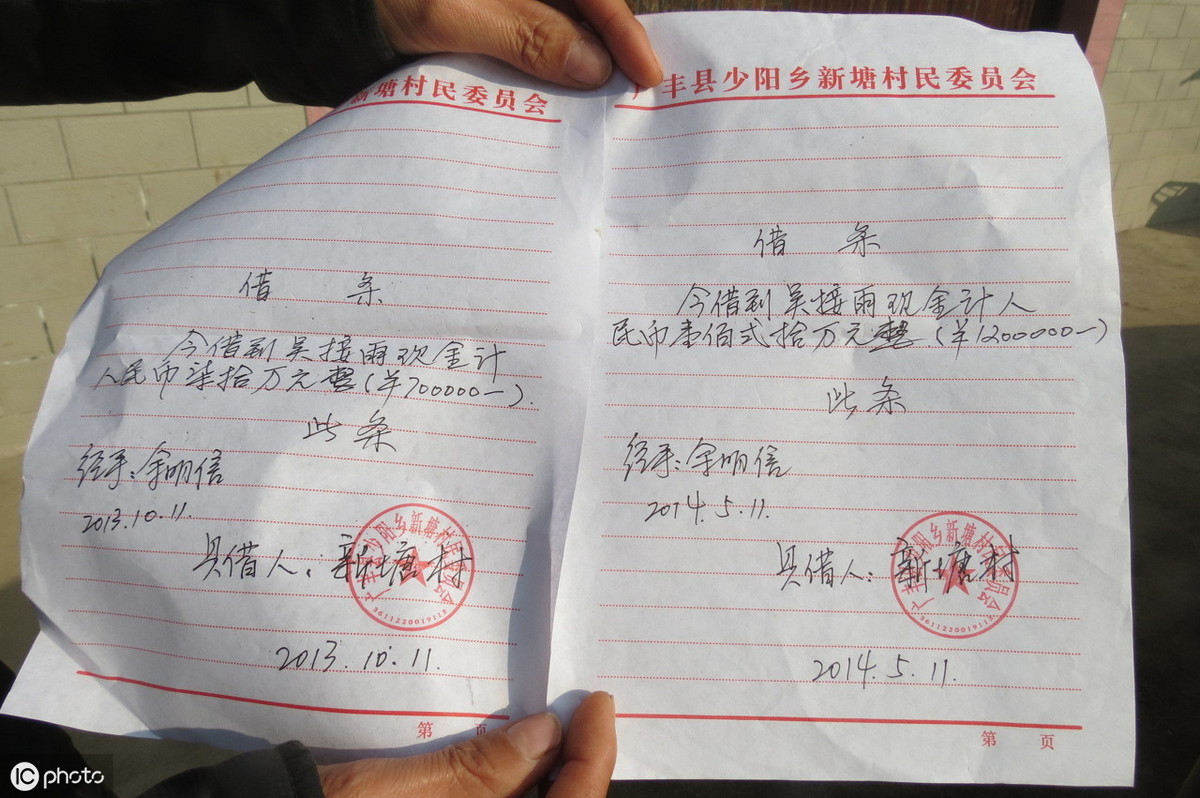 新塘村民委员会
借 条
今借到吴接雨现金计
人民币柒拾万元整(¥700000—).
此条
经手:余明信
2013.10.11.
具借人:新塘村
2013.10.11.
第 页
广丰县少阳乡新塘村民委员会
借 条
今借到吴接雨现金计人
民币壹佰弍拾万元整(¥1200000—)
此条
经手:余明信
2014.5.11.
具借人:新塘村
2014.5.11.
第 页
IC photo